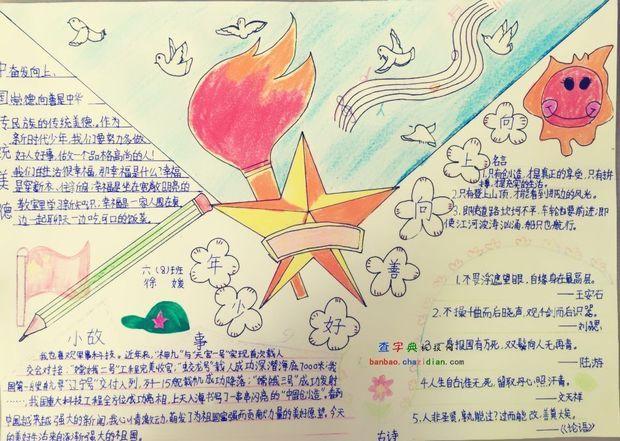 中国传统美德
奋发向上、
崇德向善是中华
民族的传统美德。作为
新时代少年,我们要努力多做
好人好事,做一个品格高尚的人!
我们的生活很幸福,那幸福是什么?幸福
是穿新衣、住新房;幸福是坐在宽敞明亮的
教室里学习新知识;幸福是一家人围在桌
边一起聊天一边吃可口的饭菜。
向
上
向
善
好
少
年
六(8)班
徐媛
名言
1.只有创造,才是真正的享受,只有拼
搏,才是充实的生活。
2.只有登上山顶,才能看到那边的风光。
3.即使道路坎坷不平,车轮也要前进;即
使江河波涛汹涌,船只也航行。
小故事
我也喜欢军事科技。近年来,"神九"与"天宫一号"实现首次载人
交会对接;"嫦娥二号"工程完美收官;"蛟龙号"载人成功深潜海底7000米;我
国第一艘航母"辽宁号"交付入列,歼-15舰载机成功降落;"嫦娥三号"成功发射
……我国重大科技工程全方位成功亮相,上天入海书写了一串串闪亮的"中国创造"。看到
中国越来越强大的新闻,我心儿膏激动,萌发了为祖国富强而贡献力量的美好愿望。今天
的美好生活来自逐渐强大的祖国。
1.不畏浮遮望眼,自缘身在最高层。
——王安石
2.不操千曲而后晓声,观千剑而后识器。
——刘勰
3.报国有万死,双鬓向人无再青。
——陆游
4.人生自古谁无死,留取丹心照汗青。
——文天祥
5.人非圣贤,孰能无过?过而能改,善莫大矣。
——《论语》
古诗
查字典 板报
banbao.chazidian.com